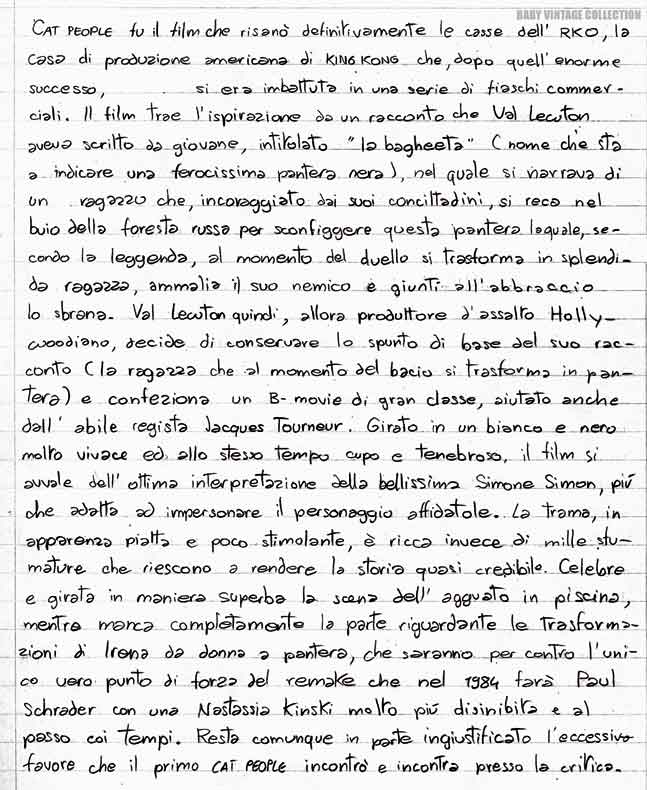 BABY VINTAGE COLLECTION
CAT PEOPLE fu il film che risanò definitivamente le casse dell' RKO, la
casa di produzione americana di KING KONG che, dopo quell'enorme
successo, si era imbattuta in una serie di fiaschi commer-
ciali. Il film trae l'ispirazione da un racconto che Val Lewton
aveva scritto da giovane, intitolato "la bagheeta" (nome che sta
a indicare una ferocissima pantera nera), nel quale si narrava di
un ragazzo che, incoraggiato dai suoi concittadini, si reca nel
buio della foresta russa per sconfiggere questa pantera laquale, se-
condo la leggenda, al momento del duello si trasforma in splendi-
da ragazza, ammalia il suo nemico e giunti all'abbraccio
lo sbrana. Val Lewton quindi, allora produttore d'assalto Holly-
woodiano, decide di conservare lo spunto di base del suo rac-
conto (la ragazza che al momento del bacio si trasforma in pan-
tera) e confeziona un B-movie di gran classe, aiutato anche
dall' abile regista Jacques Tourneur. Girato in un bianco e nero
molto vivace ed allo stesso tempo cupo e tenebroso, il film si
avvale dell' ottima interpretazione della bellissima Simone Simon, più
che adatta ad impersonare il personaggio affidatole. La trama, in
apparenza piatta e poco stimolante, è ricca invece di mille sfu-
mature che riescono a rendere la storia quasi credibile. Celebre
e girata in maniera superba la scena dell' agguato in piscina,
mentre manca completamente la parte riguardante le trasforma-
zioni di Irena da donna a pantera, che saranno per contro l'uni-
co vero punto di forza del remake che nel 1984 farà Paul
Schrader con una Nastassia Kinski molto più disinibita e al
passo coi tempi. Resta comunque in parte ingiustificato l'eccessivo
favore che il primo CAT PEOPLE incontrò e incontra presso la critica.